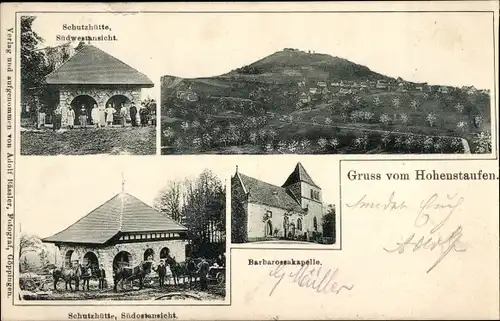 Schutzhütte,
Südwestansicht.
Verlag und aufgenommen von Adolf Bässler, Fotograf, Göppingen.
Gruss vom Hohenstaufen.
Adolf
Barbarossakapelle.
Müller
Schutzhütte, Südostansicht.